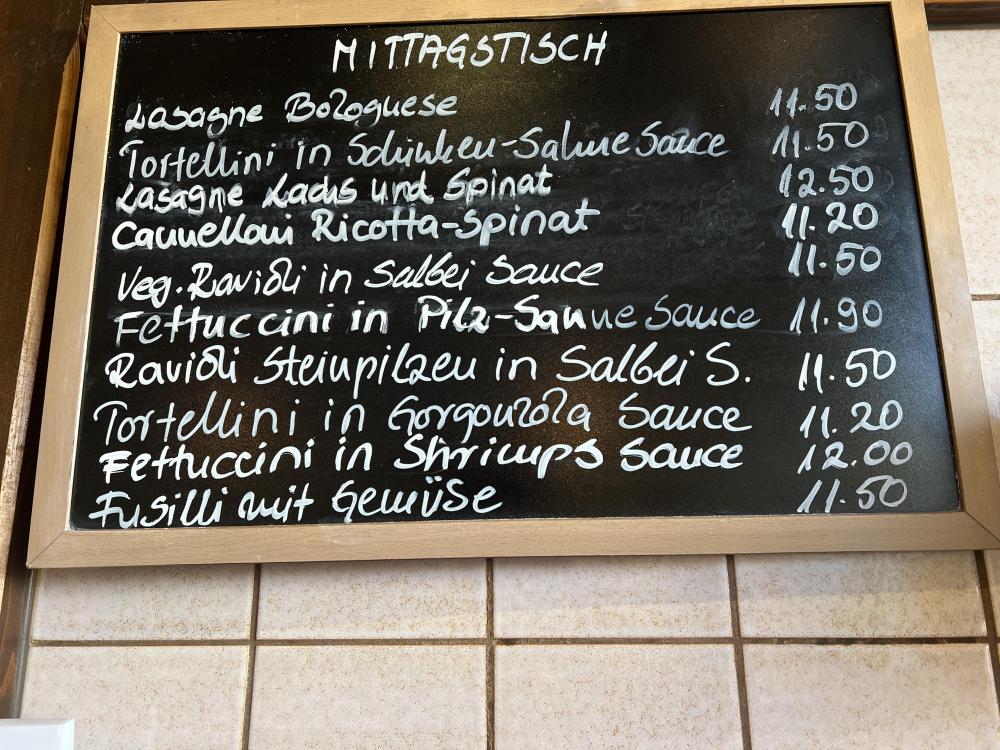 MITTAGSTISCH
Lasagne Bolognese 11.50
Tortellini in Schinken-Sahne Sauce 11.50
Lasagne Lachs und Spinat 12.50
Cannelloni Ricotta-Spinat 11.20
Veg. Ravioli in Salbei Sauce 11.50
Fettuccini in Pilz-Sahne Sauce 11.90
Ravioli Steinpilzen in Salbei S. 11.50
Tortellini in Gorgonzola Sauce 11.20
Fettuccini in Shrimps Sauce 12.00
Fusilli mit Gemüse 11.50